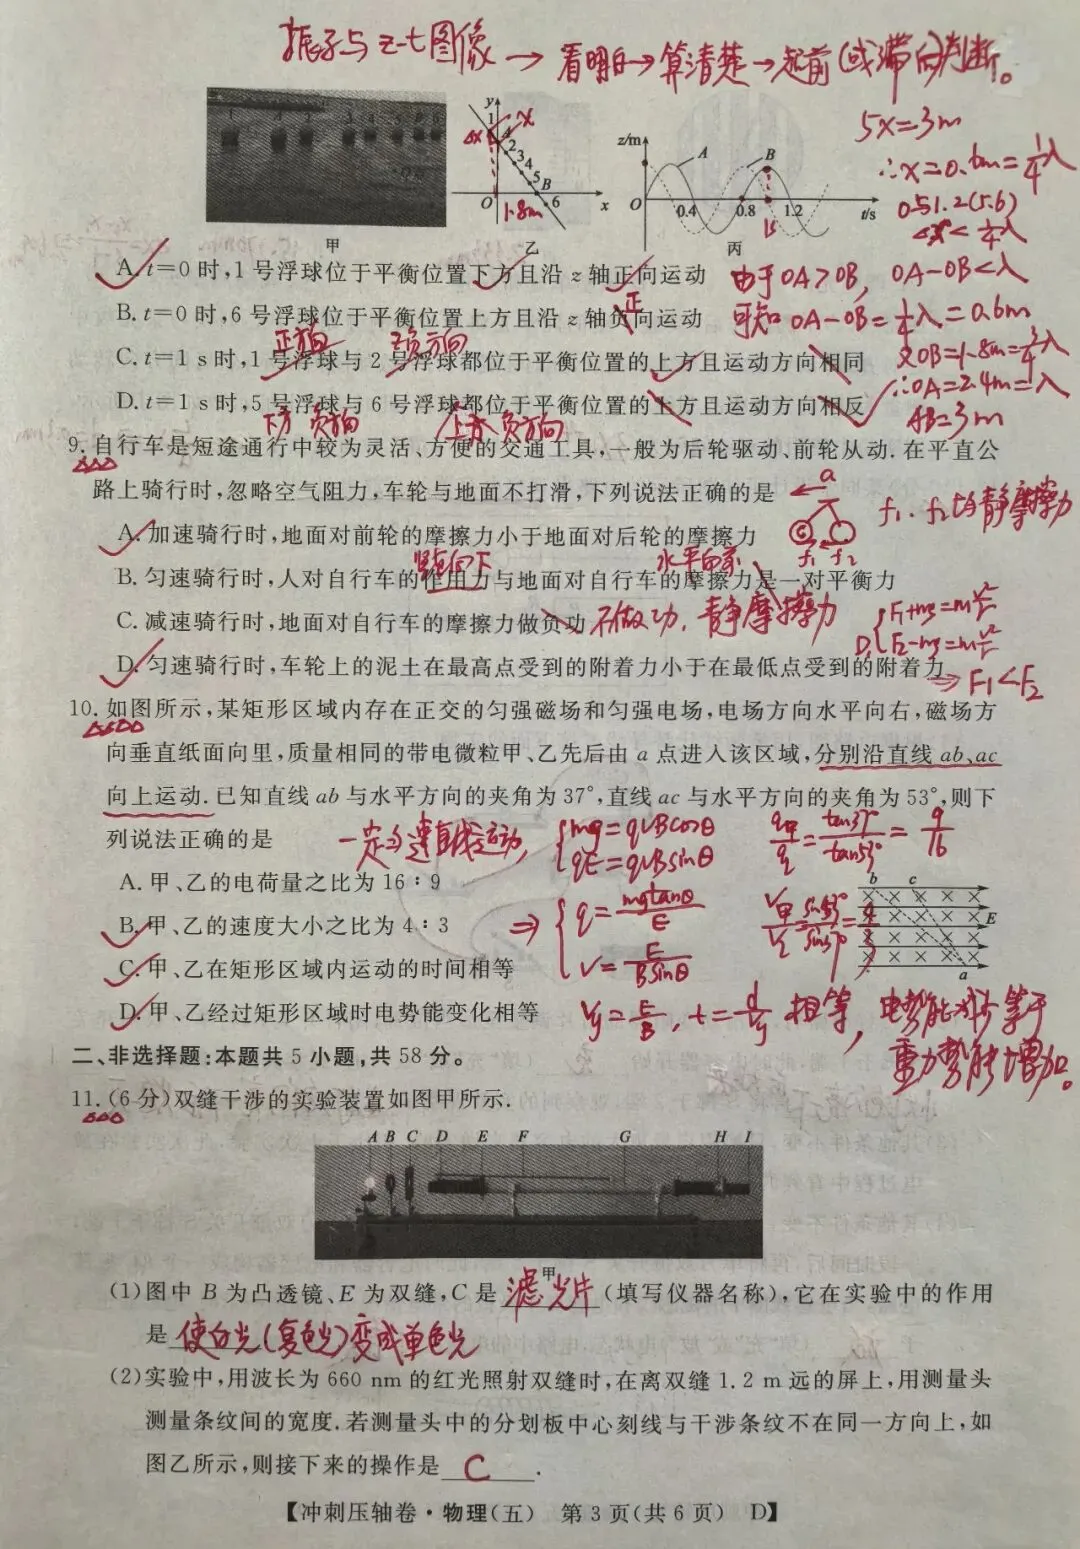 振子与 z-t图像 → 看明白→算清楚→超前(或滞向)判断。
5x=3m
∴x=0.6m=1/4λ
0与1.2(5.6)
<x<1/4λ
y
x
1
2
3
4
5
B
6
O
1.8m
x
z/m
A
B
O
0.4
0.8
1.2
1s
t/s
甲
乙
丙
A. t=0 时,1 号浮球位于平衡位置下方且沿 z 轴正向运动
由于OA>OB, OA-OB<λ
B. t=0 时,6 号浮球位于平衡位置上方且沿 z 轴负向运动
正
可知 OA-OB=1/4λ=0.6m
正方向 负方向
又OB=1.8m=3/4λ
C. t=1 s 时,1 号浮球与 2 号浮球都位于平衡位置的上方且运动方向相同
∴OA=2.4m=λ
D. t=1 s 时,5 号浮球与 6 号浮球都位于平衡位置的上方且运动方向相反
AB=3m
下方 负方向 上方 负方向
9. 自行车是短途通行中较为灵活、方便的交通工具,一般为后轮驱动、前轮从动. 在平直公
路上骑行时,忽略空气阻力,车轮与地面不打滑,下列说法正确的是
a
f1. f2均为静摩擦力
A. 加速骑行时,地面对前轮的摩擦力小于地面对后轮的摩擦力
f1 f2
竖直向下 水平向右
B. 匀速骑行时,人对自行车的作用力与地面对自行车的摩擦力是一对平衡力
C. 减速骑行时,地面对自行车的摩擦力做负功 不做功, 静摩擦力
D. F1+mg=mv²/r
F2-mg=mv²/r
D. 匀速骑行时,车轮上的泥土在最高点受到的附着力小于在最低点受到的附着力
⇒F1<F2
10. 如图所示,某矩形区域内存在正交的匀强磁场和匀强电场,电场方向水平向右,磁场方
向垂直纸面向里,质量相同的带电微粒甲、乙先后由 a 点进入该区域,分别沿直线 ab、ac
向上运动. 已知直线 ab 与水平方向的夹角为 37°,直线 ac 与水平方向的夹角为 53°,则下
列说法正确的是
一定匀速直线运动, mg=qvBcosθ
qE=qvBsinθ
q甲/q乙=tan37°/tan53°=9/16
A. 甲、乙的电荷量之比为 16 : 9
b c
E
a
B. 甲、乙的速度大小之比为 4 : 3
⇒ q=mgtanθ/E
v甲/v乙=sin53°/sin37°=4/3
C. 甲、乙在矩形区域内运动的时间相等
v=E/Bsinθ
D. 甲、乙经过矩形区域时电势能变化相等
vy=E/B, t=d/vy 相等, 电势能减少等于
重力势能增加。
二、非选择题:本题共 5 小题,共 58 分。
11. (6 分)双缝干涉的实验装置如图甲所示.
A B C D E F G H I
甲
(1)图中 B 为凸透镜、E 为双缝,C 是 滤光片 (填写仪器名称),它在实验中的作用
是 使白光(复色光)变成单色光
(2)实验中,用波长为 660 nm 的红光照射双缝时,在离双缝 1.2 m 远的屏上,用测量头
测量条纹间的宽度. 若测量头中的分划板中心刻线与干涉条纹不在同一方向上,如
图乙所示,则接下来的操作是 C .
【冲刺压轴卷·物理(五) 第 3 页(共 6 页) D】